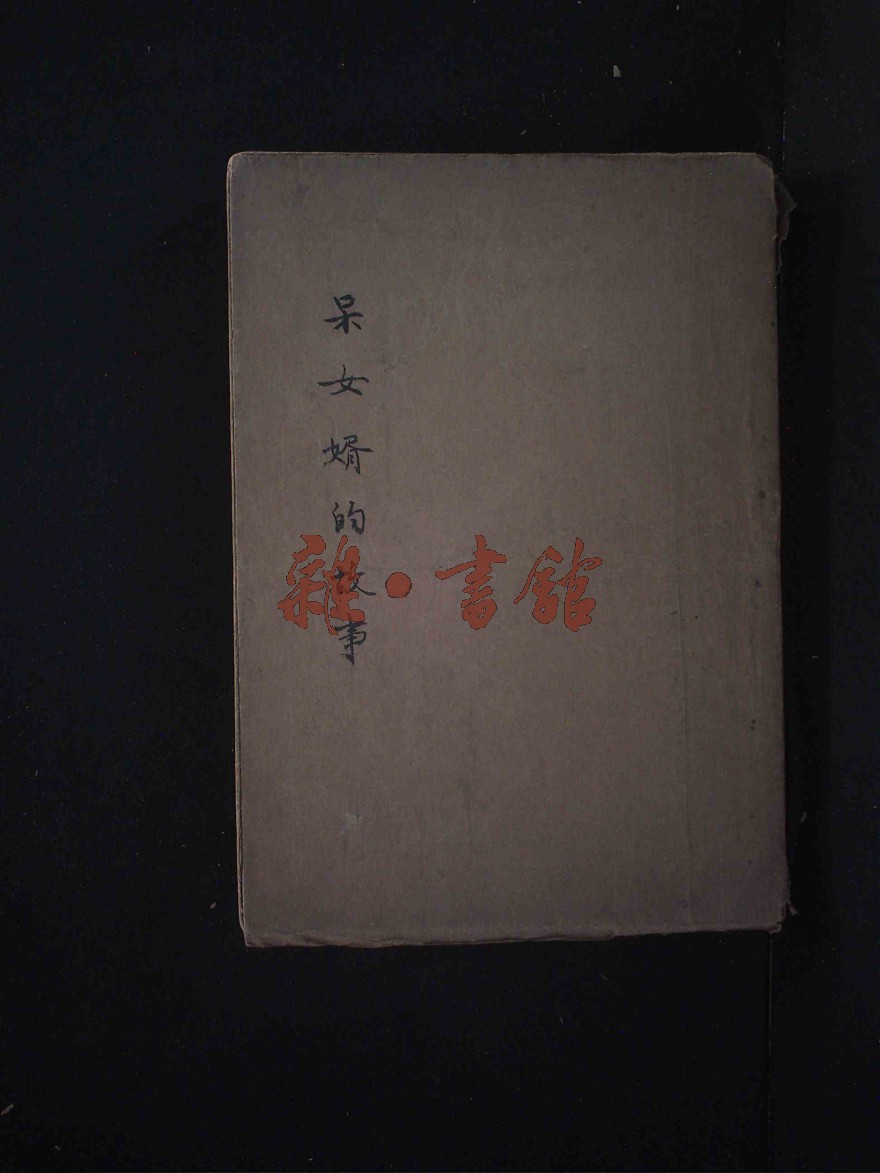 呆女婿的故事
雜·書館